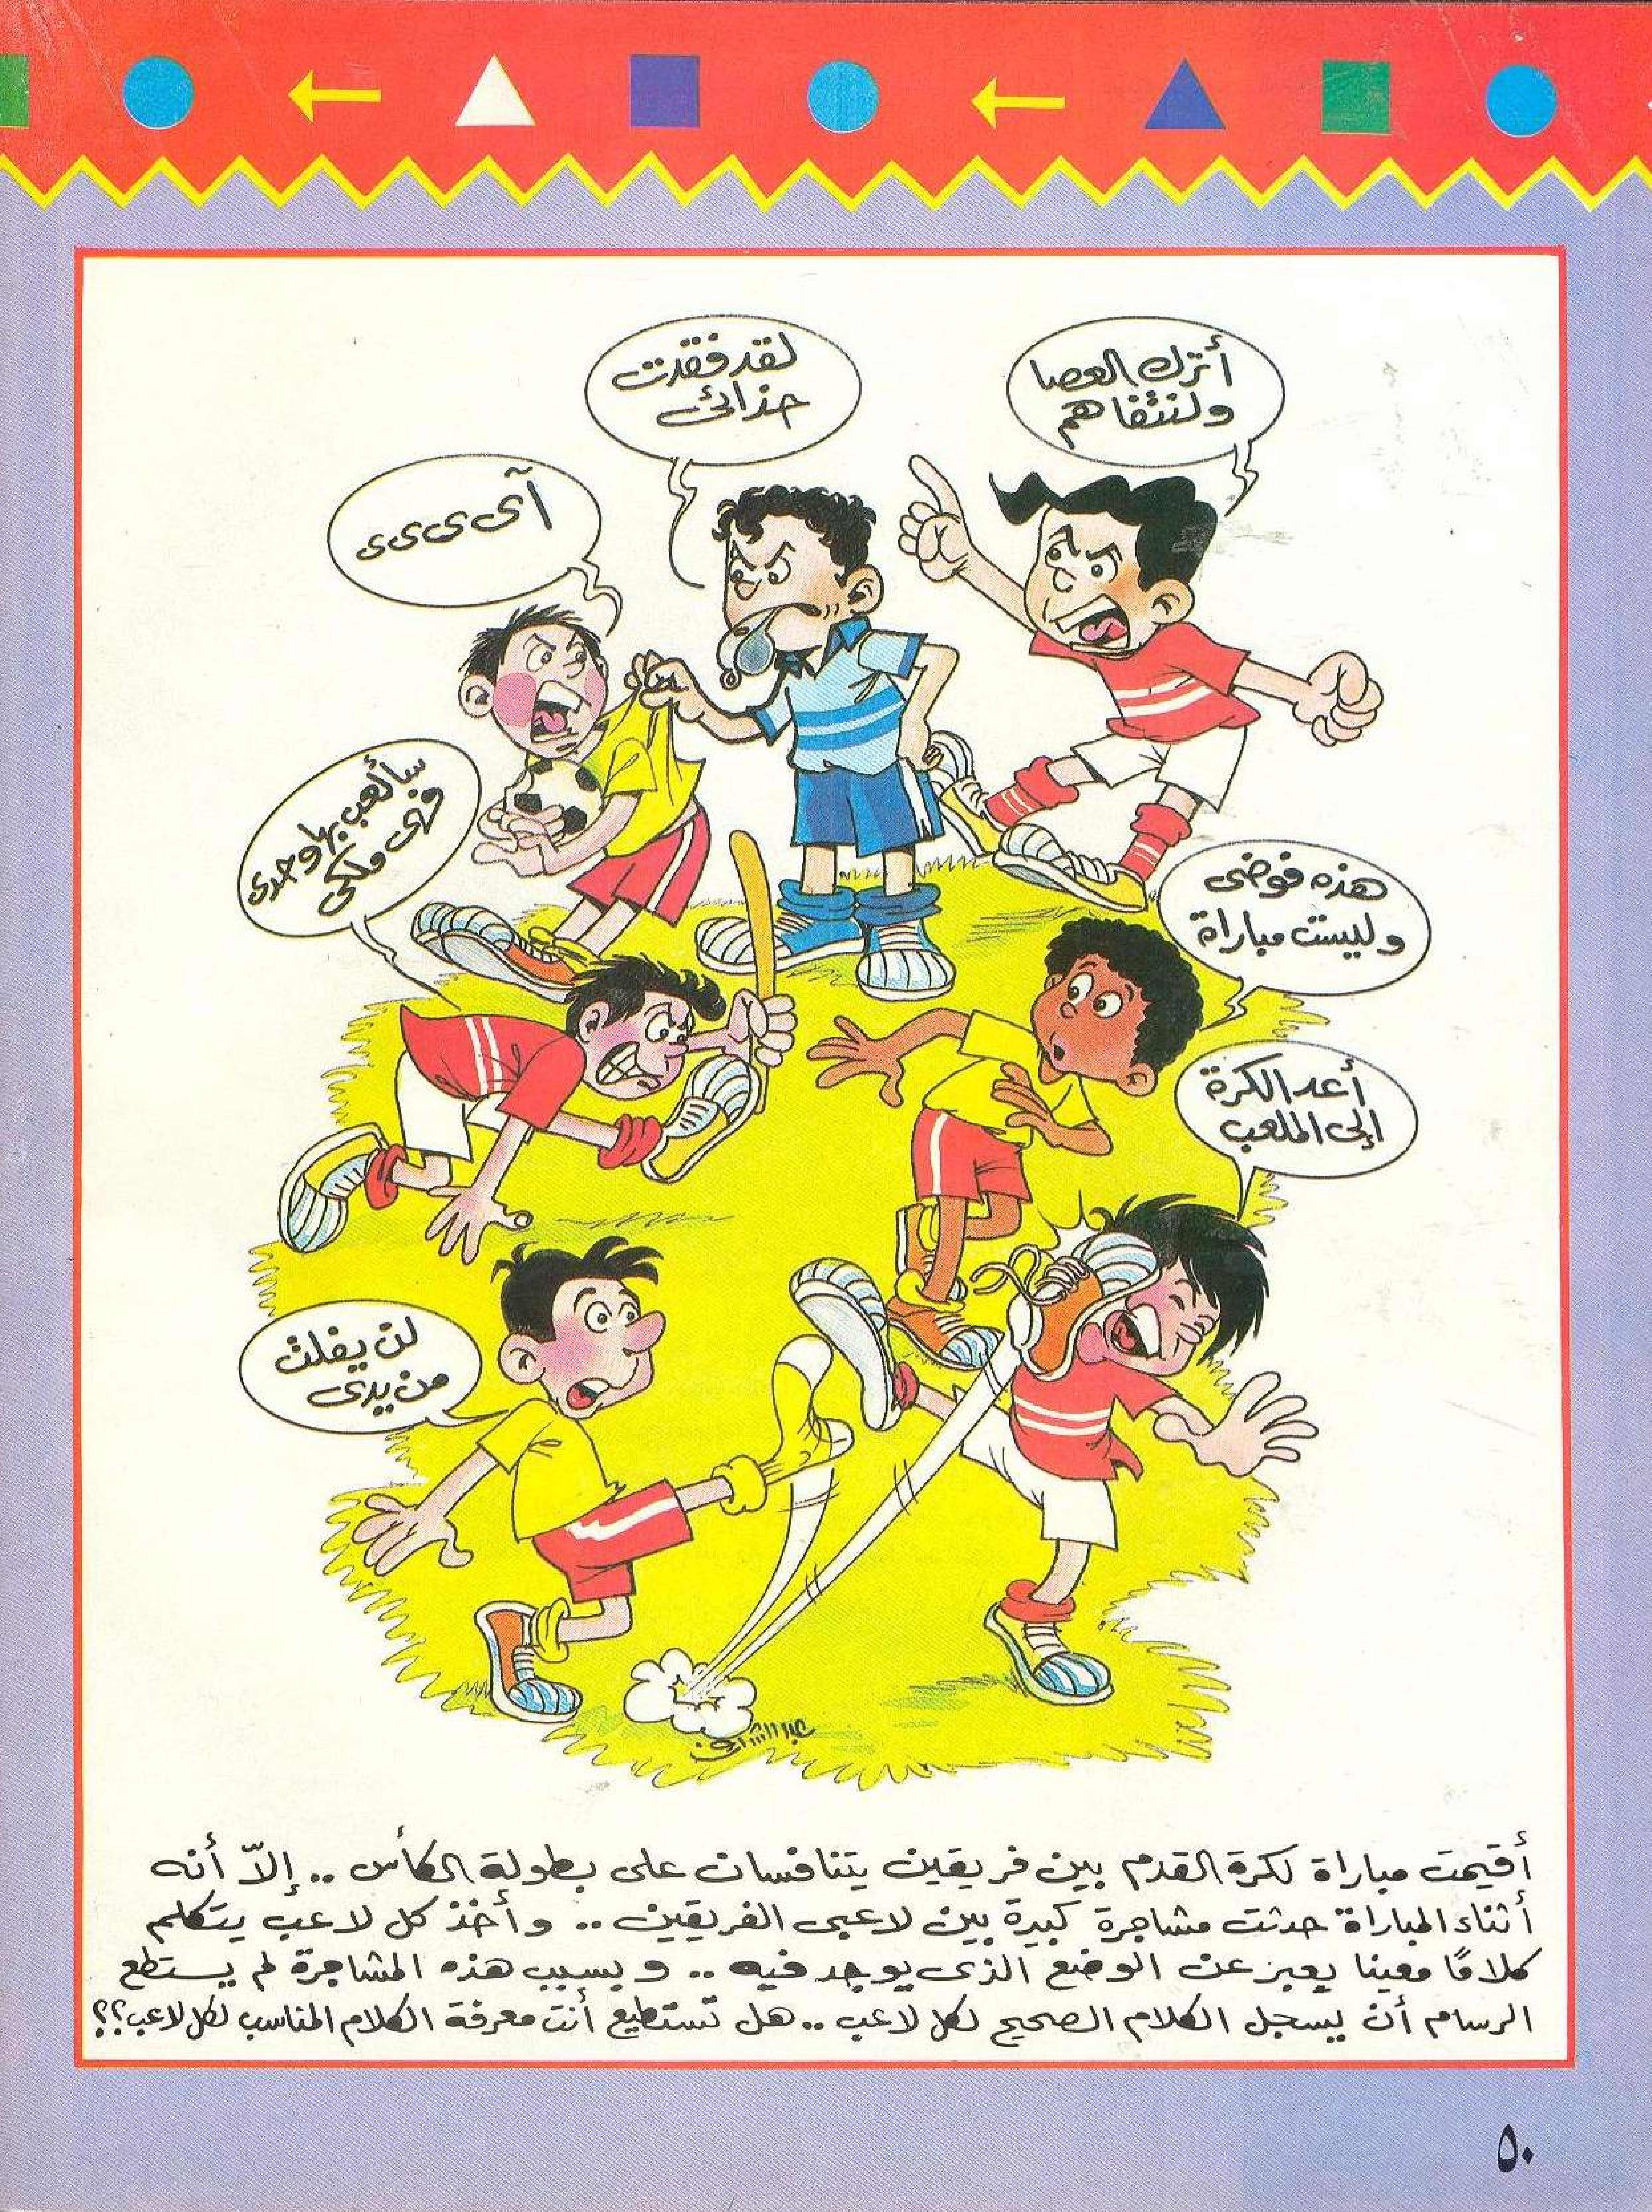 أترك العصا
ولنتفاهم
لقد فقدت
حذائى
آى ى ى ى
سألعب بها وحدى
فهى ملكى
هذه فوضى
وليست مباراة
أعد الكرة
إلى الملعب
لن يفلت
من يدى
عبد الشافى
أقيمت مباراة لكرة القدم بين فريقين يتنافسان على بطولة الكأس .. إلاّ أنه
أثناء المباراة حدثت مشاجرة كبيرة بين لاعبى الفريقين .. وأخذ كل لاعب يتكلم
كلامًا معينا يعبر عن الوضع الذى يوجد فيه .. و بسبب هذه المشاجرة لم يستطع
الرسام أن يسجل الكلام الصحيح لكل لاعب .. هل تستطيع أنت معرفة الكلام المناسب لكل لاعب؟؟
٥٠